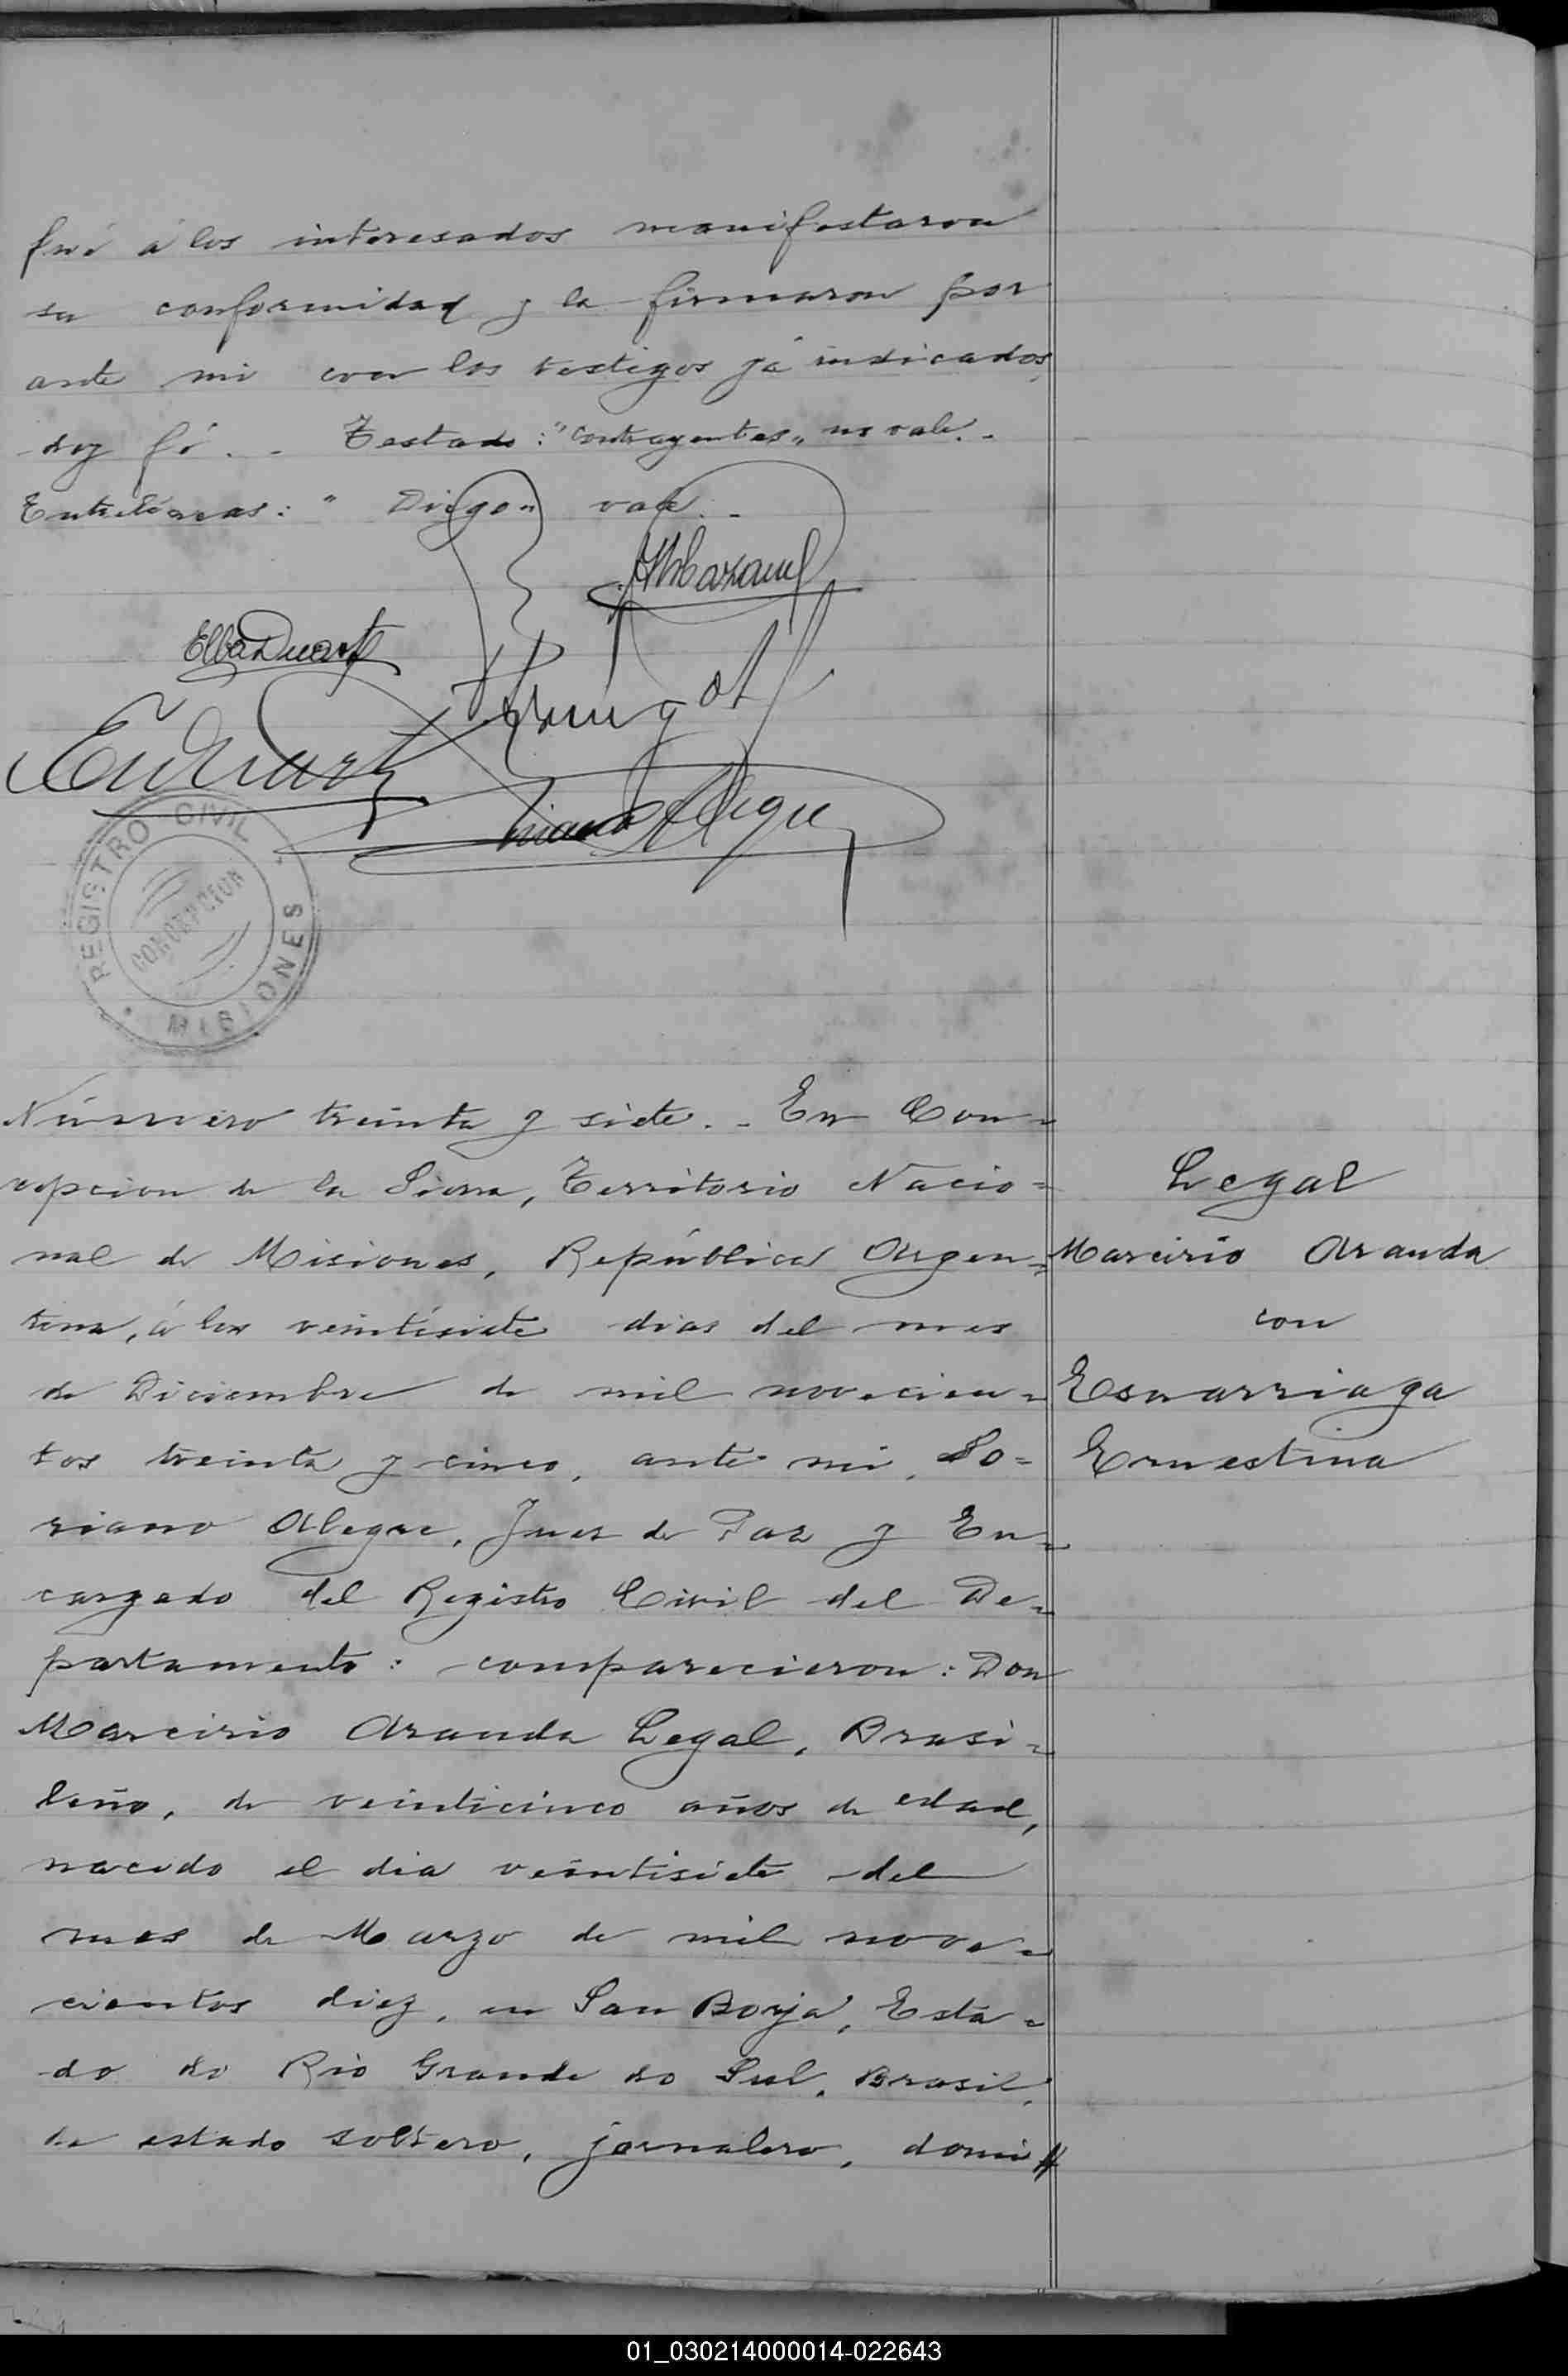 fué á los interesados manifestaron
su conformidad y la firmaron por
ante mi con los testigos ya indicados,
doy fé. - Testado: "contrayentes" no vale. -
Entrelineas: " Diego" vale. -
Elba Duarte
REGISTRO CIVIL
CONCEPCION
MISIONES
Número treinta y siete. - En Con=
cepcion de la Sierra, Territorio Nacio=
nal de Misiones, República Argen=
tina, á los veintisiete dias del mes
de Diciembre de mil novecien=
tos treinta y cinco, ante mi, So=
riano Alegre, Juez de Paz y En=
cargado del Registro Civil del De=
partamento: comparecieron: Don
Marcirio Aranda Legal, Brasi=
leño, de veinticinco años de edad,
nacido el dia veintisiete del
mes de Marzo de mil nove=
cientos diez, en San Borja, Esta=
do do Rio Grande do Sul, Brasil,
de estado soltero, jornalero, domi//
Legal
Marcirio Aranda
con
Esnarriaga
Ernestina
01_030214000014-022643